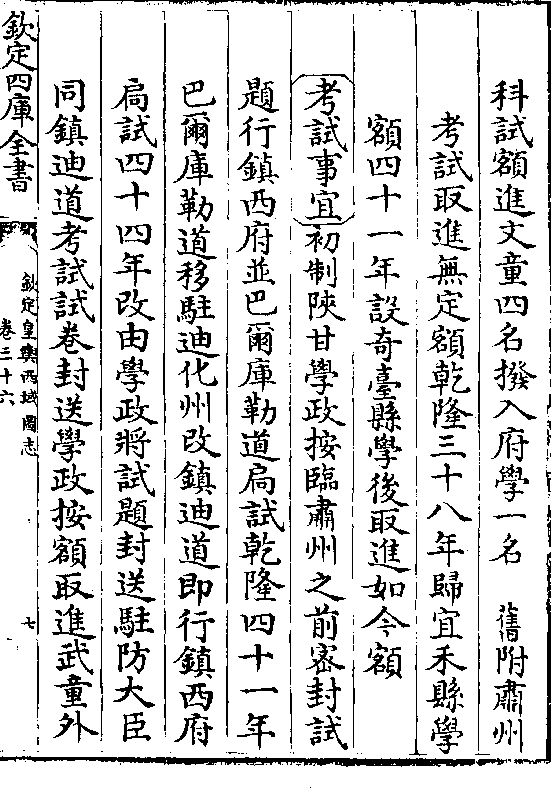 科試額進文童四名撥入府學一名　舊附肅州
考試取進無定額乾隆三十八年歸宜禾縣學
額四十一年設奇臺縣學後取進如今額
考試事宜初制陝甘學政按臨肅州之前密封試
題行鎮西府並巴爾庫勒道扃試乾隆四十一年
巴爾庫勒道移駐迪化州改鎮迪道即行鎮西府
扃試四十四年改由學政將試題封送駐防大臣
同鎮迪道考試試卷封送學政按額取進武童外
欽定四庫全書
欽定皇輿西域圖志
卷三十六
七